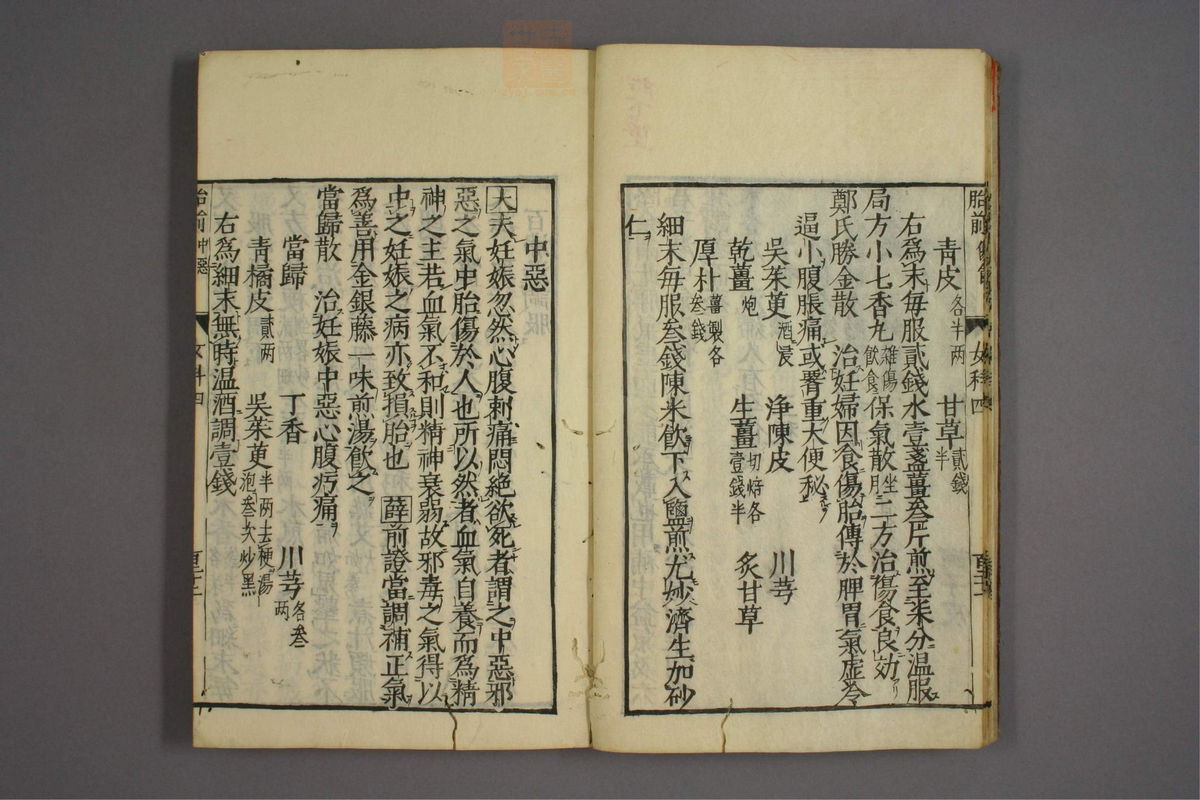 胎前 傷食 女科四
青皮各半兩 甘草貳錢半
右為末每服貳錢水壹盞薑叁片煎至柒分溫服
局方小七香丸雜傷飲食保氣散 二方治傷食良効
鄭氏勝金散 治妊婦因食傷胎傳於脾胃氣虛冷
逼小腹脹痛或腎重大便秘
吳茱萸酒浸 浄陳皮 川芎
乾薑炮 生薑切焙各壹錢半 炙甘草
厚朴薑製各叁錢
細末每服叁錢陳米飲下入鹽煎尤妙濟生加砂
仁
中惡
大夫妊娠忽然心腹刺痛悶絕欲死者謂之中惡邪
惡之氣中胎傷於人也所以然者血氣自養而為精
神之主若血氣不和則精神衰弱故邪毒之氣得以
中之妊娠之病亦致損胎也 薛前證當調補正氣
為善用金銀藤一味煎湯飲之
當歸散 治妊娠中惡心腹㽲痛
當歸 丁香 川芎各叁兩
青橘皮貳兩 吳茱萸半兩去梗湯泡叁次炒黑
右為細末無時温酒調壹錢
胎前 中惡 女科四